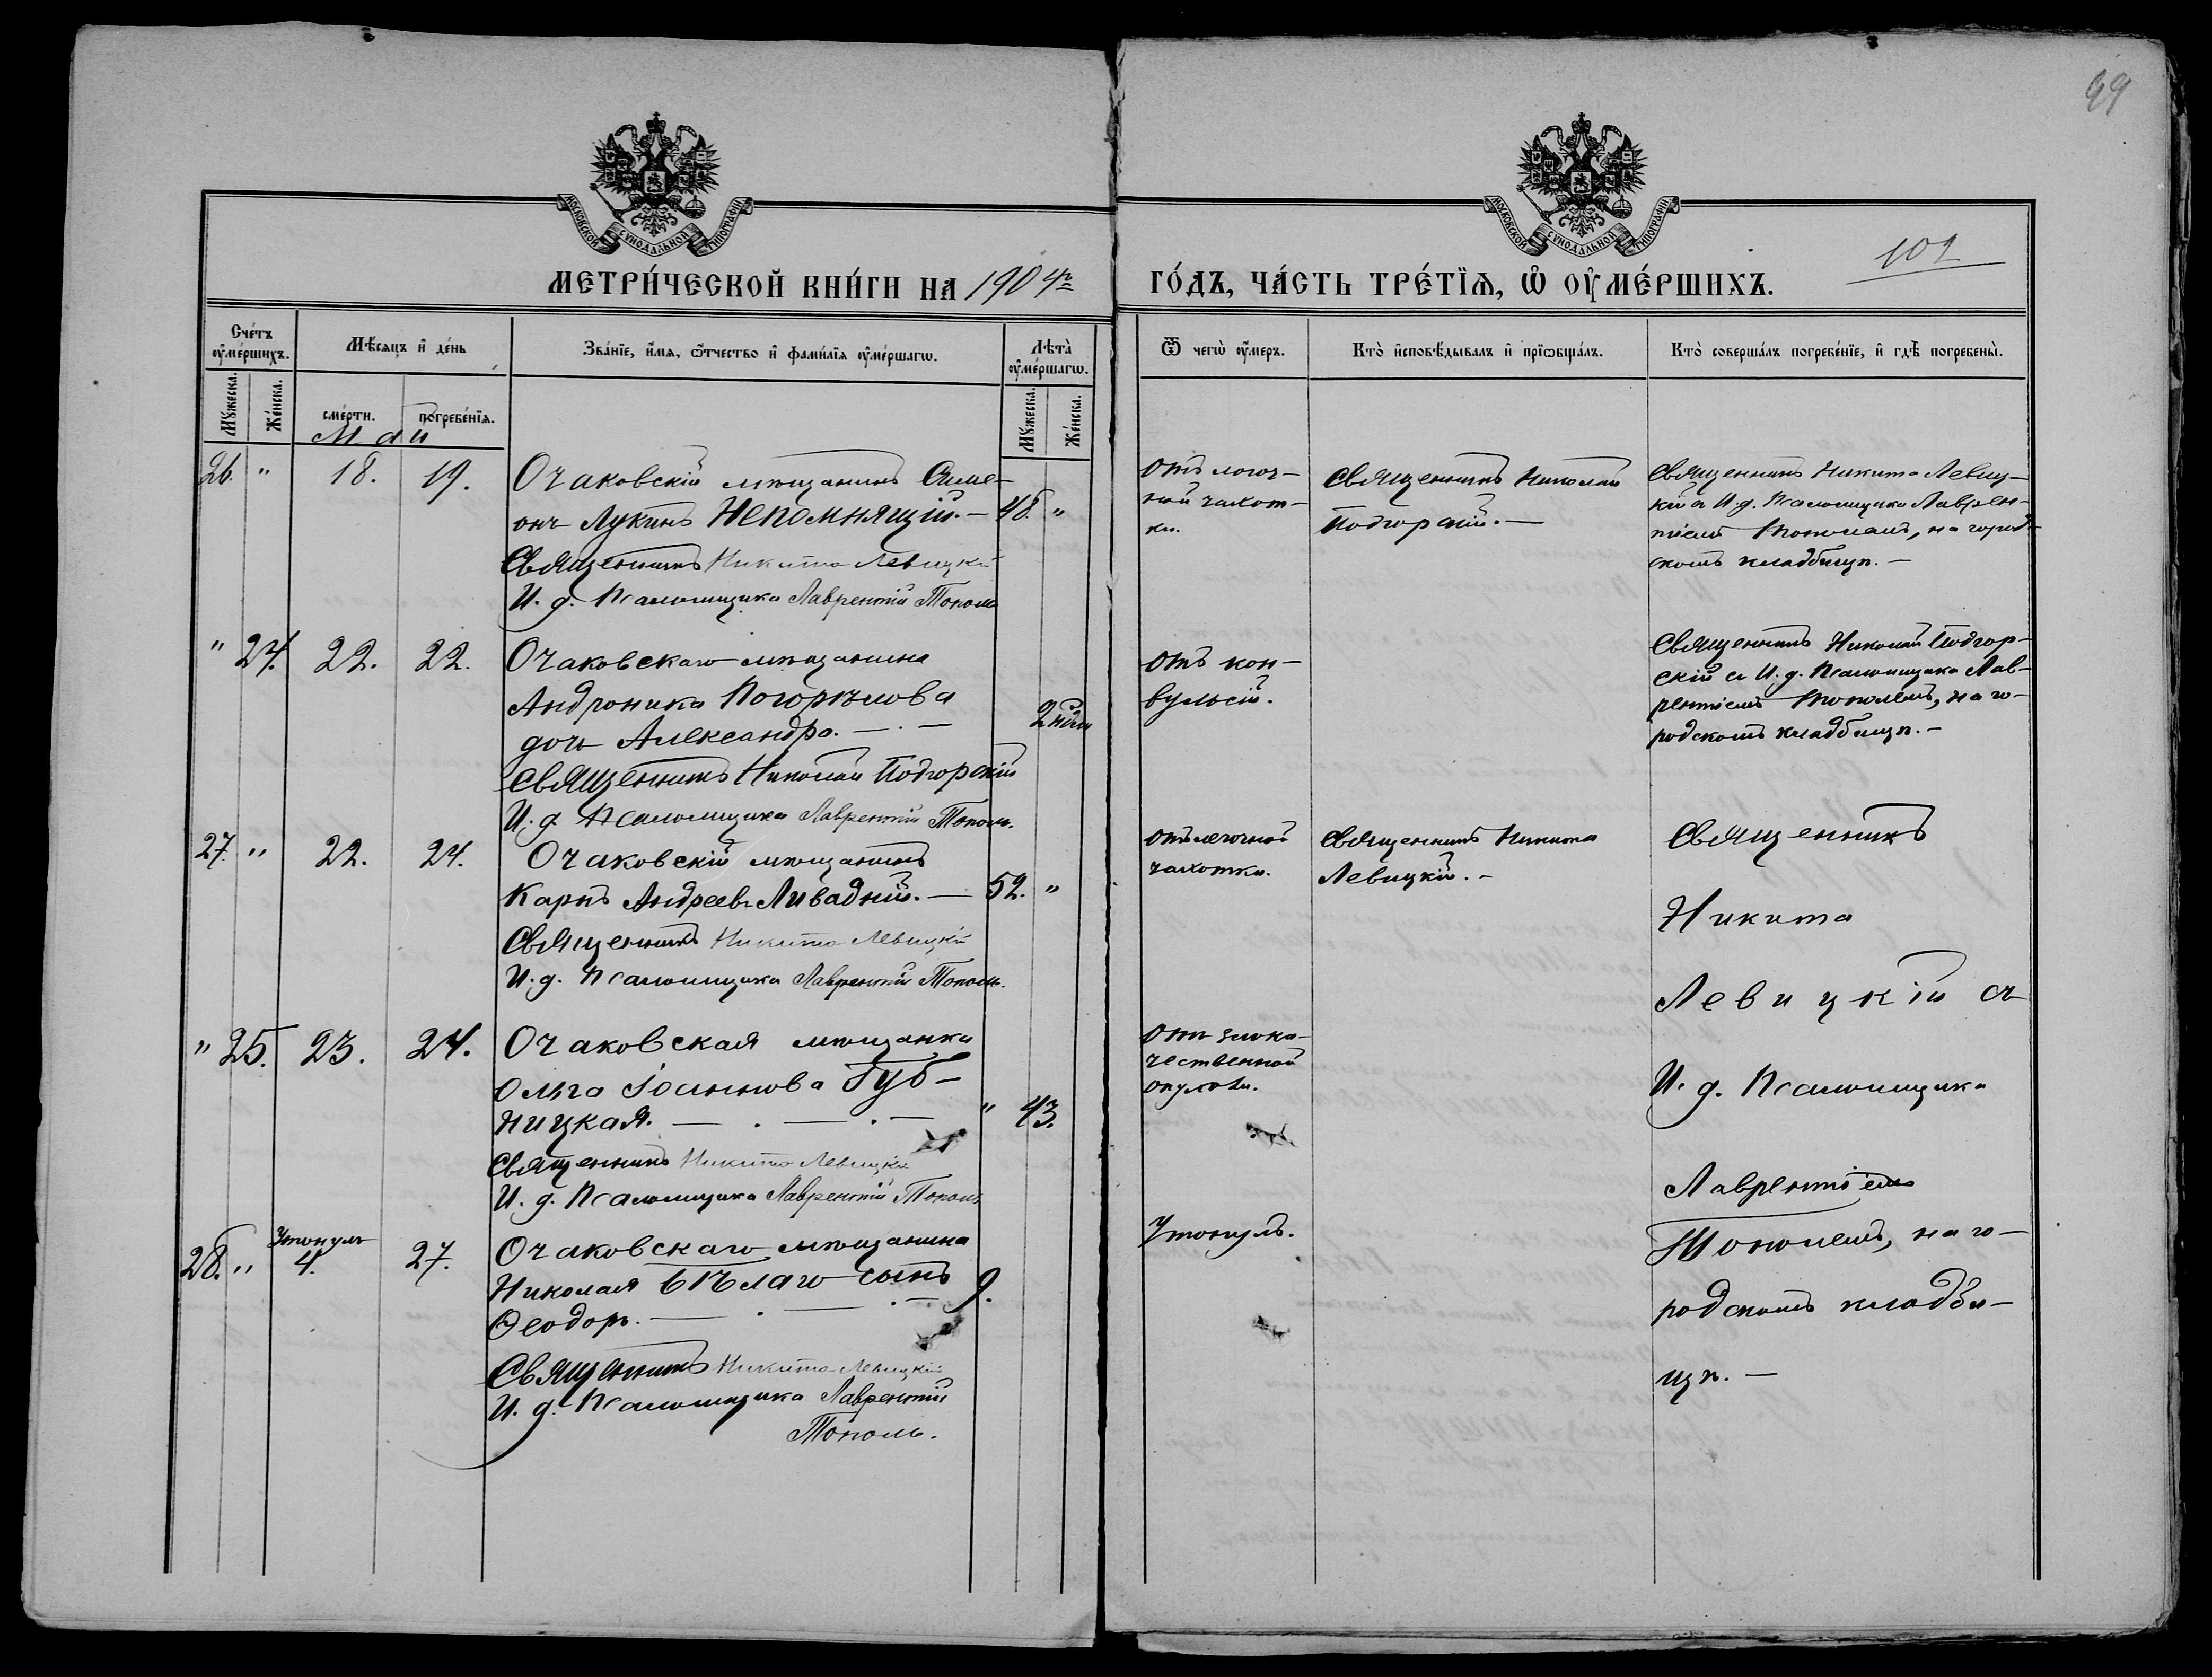 99
МОСКОВСКОЙ СУНОДАЛЬНОЙ ТИПОГРАФІИ
МОСКОВСКОЙ СУНОДАЛЬНОЙ ТИПОГРАФІИ
102
МЕТРИ́ЧЕСКОЙ КНИ́ГИ НА 1904 ГО́ДЪ, ЧА́СТЬ ТРЕ́ТЇѦ, Ѡ ОУМЕ́РШИХЪ.
Сче́тъ оуме́ршихъ.
Мꙋжеска.
Же́нска.
Мѣ́сѧцъ и де́нь
сме́рти.
погребе́нїѧ.
Зва́нїе, и́мѧ, ѻ́тчество и фами́лїѧ оуме́ршагѡ.
Лѣта̀ оуме́ршагѡ.
Мꙋжеска.
Же́нска.
Ѿ чегѡ̀ оу́меръ.
Кто̀ исповѣ́дывалъ и прїѡбща́лъ.
Кто̀ соверша́лъ погребе́нїе, и гдѣ̀ погребены̀.
Май
26. " 18. 19.
Очаковскій мѣщанинъ Симе-
онъ Лукинъ Непомнящій. — 48. "
Священникъ Никита Левицкій
И. д. Псаломщика Лаврентій Тополь
Отъ легоч-
ной чахот-
ки.
Священникъ Николай
Подгорскій. —
Священникъ Никита Левиц-
кій съ И. д. Псаломщика Лаврен-
тіемъ Тополемъ, на город-
скомъ кладбищѣ. —
" 24. 22. 22.
Очаковскаго мѣщанина
Андроника Погорѣлова
дочь Александра. — . — 2 нѣд.
Священникъ Николай Подгорскій
И. д. Псаломщика Лаврентій Тополь.
Отъ кон-
вульсій.
Священникъ Николай Подгор-
скій съ И. д. Псаломщика Лав-
рентіемъ Тополемъ, на го-
родскомъ кладбищѣ. —
27. " 22. 24.
Очаковскій мѣщанинъ
Карпъ Андреевъ Ливадній. — 52. "
Священникъ Никита Левицкій
И. д. Псаломщика Лаврентій Тополь.
Отъ легочной
чахотки.
Священникъ Никита
Левицкій. —
" 25. 23. 24.
Очаковская мѣщанка
Ольга Іоаннова Губ-
ницкая. — . — . — " 43.
Священникъ Никита Левицкій
И. д. Псаломщика Лаврентій Тополь
Отъ злока-
чественной
опухоли.
28. " Утонулъ 4. 27.
Очаковскаго мѣщанина
Николая Бѣлаго сынъ
Ѳеодоръ. — . — . — 9.
Священникъ Никита Левицкій
И. д. Псаломщика Лаврентій
Тополь.
Утонулъ.
Священникъ
Никита
Левицкій съ
И. д. Псаломщика
Лаврентіемъ
Тополемъ, на го-
родскомъ кладби-
щѣ. —